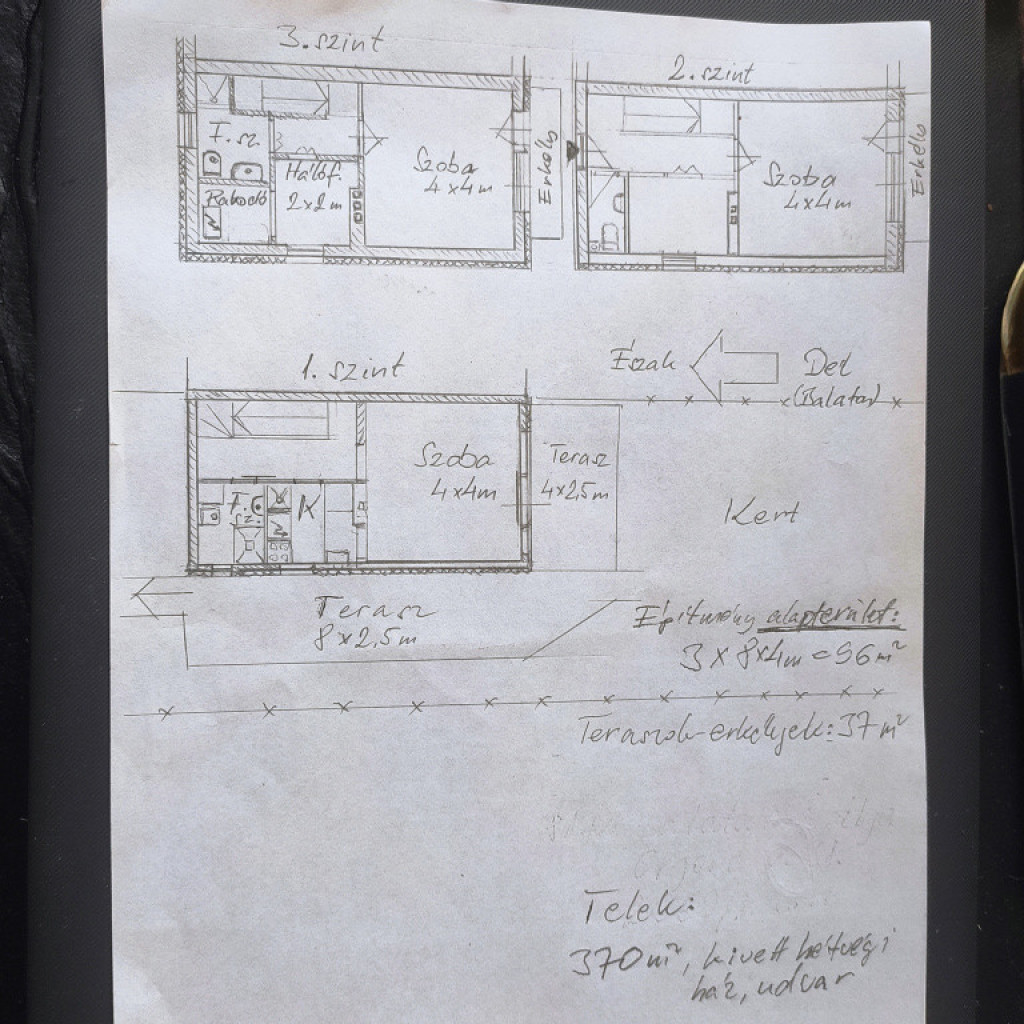 3. szint
F. sz.
Szoba
4 x 4m
Hálóf.
2 x 2m
Erkély
2. szint
Szoba
4 x 4m
Erkély
1. szint
Észak
Dél
(Balaton)
Szoba
4 x 4m
Terasz
4 x 2,5m
F.
sz.
K
Kert
Terasz
8 x 2,5m
Építmény alapterület:
3 x 8x4m = 96 m²
Teraszok-erkélyek: 37 m²
Telek:
370 m², kivett hétvégi
ház, udvar